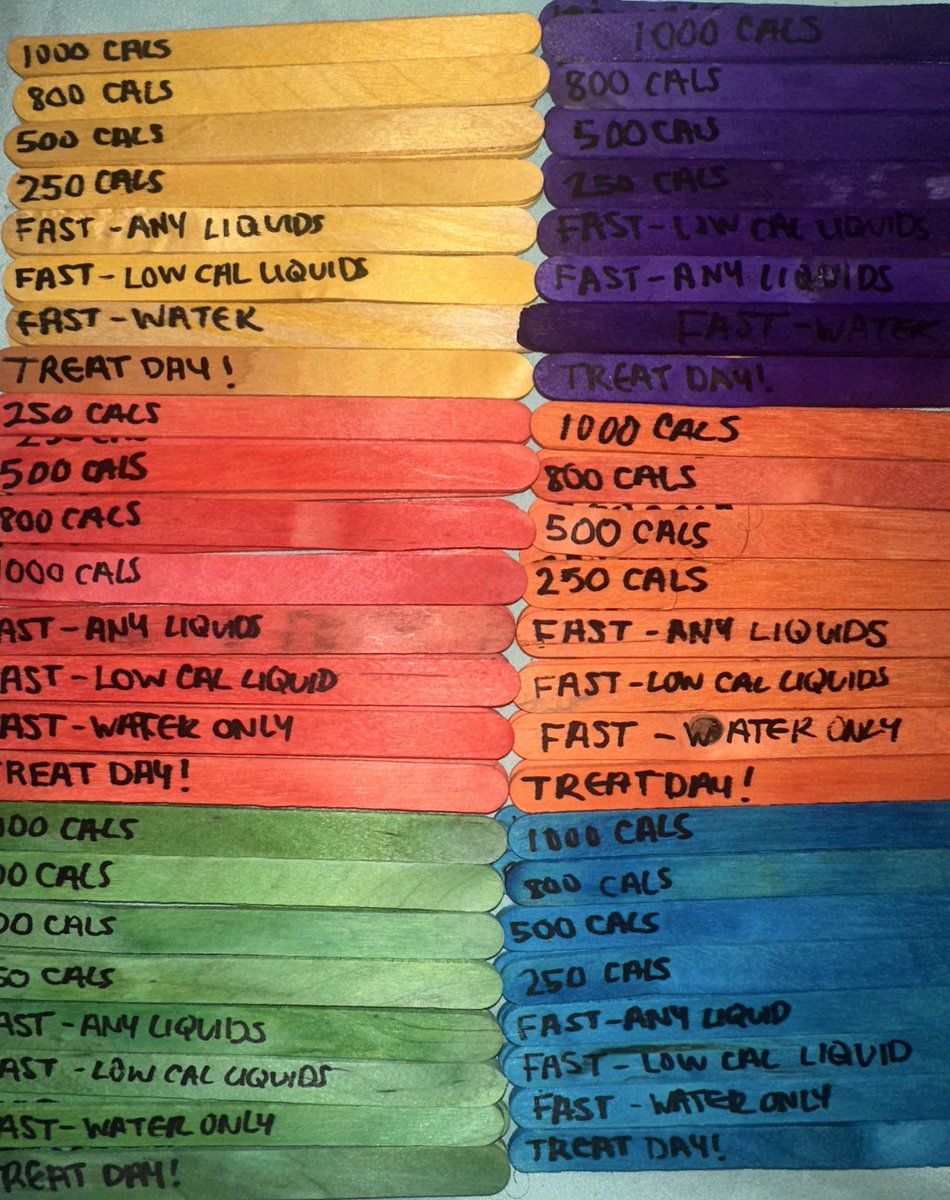 1000 CALS
800 CALS
500 CALS
250 CALS
FAST -ANY LIQUIDS
FAST-LOW CAL LIQUIDS
FAST-WATER
TREAT DAY!
1000 CALS
800 CALS
500 CALS
250 CALS
FAST-LOW CAL LIQUIDS
FAST-ANY LIQUIDS
FAST-WATER
TREAT DAY!
250 CALS
500 CALS
800 CALS
1000 CALS
AST-ANY LIQUIDS
AST-LOW CAL LIQUID
AST-WATER ONLY
TREAT DAY!
1000 CALS
800 CALS
500 CALS
250 CALS
FAST -ANY LIQUIDS
FAST-LOW CAL LIQUIDS
FAST - WATER ONLY
TREAT DAY!
CALS
00 CALS
00 CALS
50 CALS
AST-ANY LIQUIDS
AST -LOW CAL LIQUIDS
AST-WATER ONLY
REAT DAY!
1000 CALS
800 CALS
500 CALS
250 CALS
FAST-ANY LIQUID
FAST-LOW CAL LIQUID
FAST -WATER ONLY
TREAT DAY!